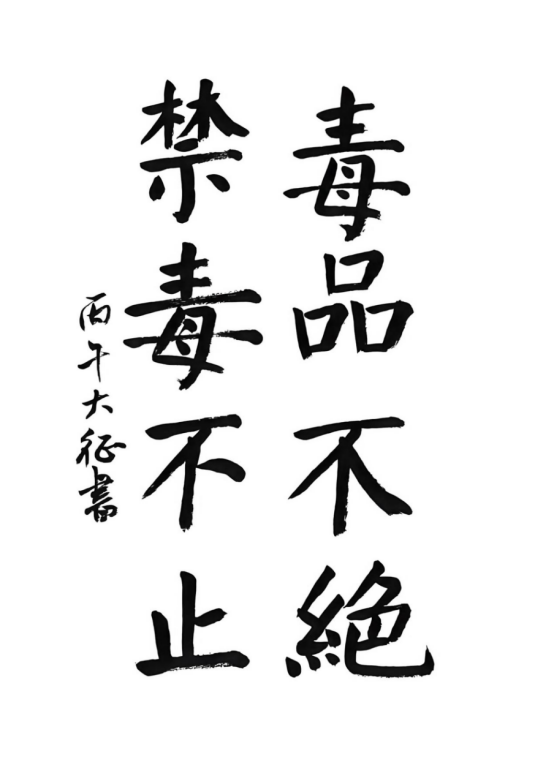 毒品不絕
禁毒不止
丙午大征書